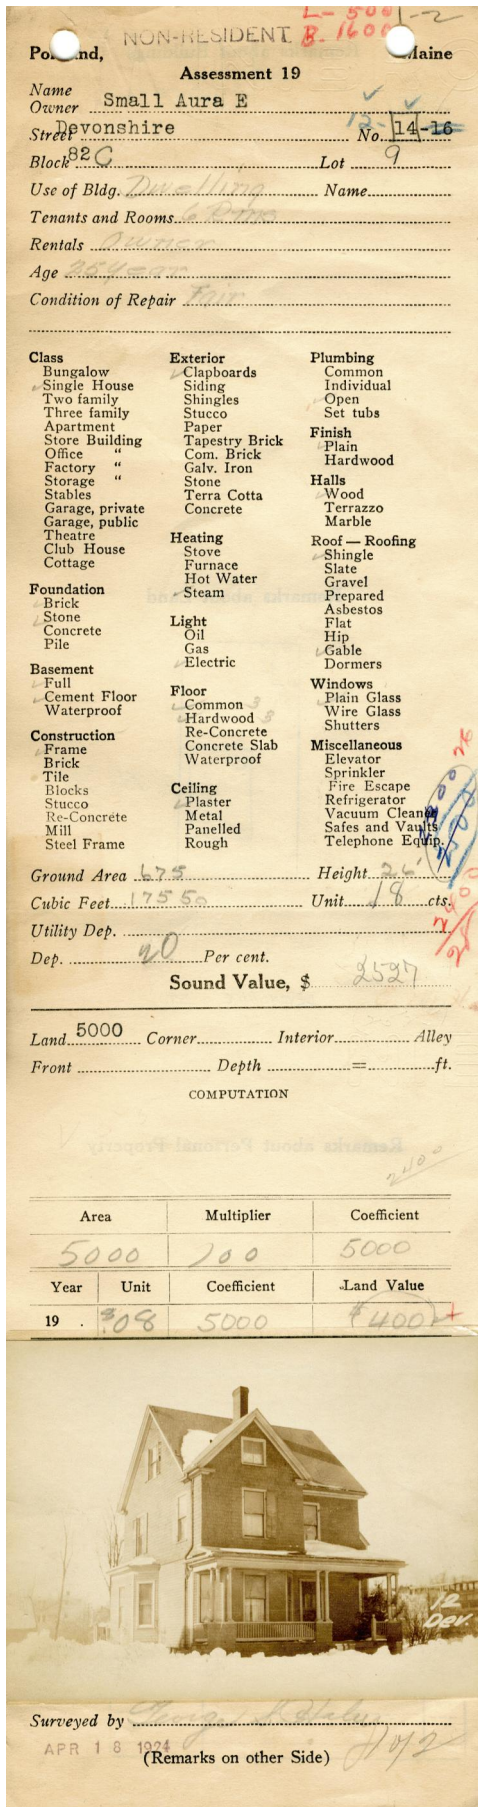 L- 500 1-2
NON-RESIDENT B- 1600
Portland, Maine
Assessment 19
Name
Owner Small Aura E
Street Devonshire No. 12- 14-16
Block 82C Lot 9
Use of Bldg. Dwelling Name
Tenants and Rooms 6 Rms
Rentals Owner
Age 25 year
Condition of Repair Fair
Class
Bungalow
Single House
Two family
Three family
Apartment
Store Building
Office "
Factory "
Storage "
Stables
Garage, private
Garage, public
Theatre
Club House
Cottage
Foundation
Brick
Stone
Concrete
Pile
Basement
Full
Cement Floor
Waterproof
Construction
Frame
Brick
Tile
Blocks
Stucco
Re-Concrete
Mill
Steel Frame
Exterior
Clapboards
Siding
Shingles
Stucco
Paper
Tapestry Brick
Com. Brick
Galv. Iron
Stone
Terra Cotta
Concrete
Heating
Stove
Furnace
Hot Water
Steam
Light
Oil
Gas
Electric
Floor
Common 3
Hardwood 3
Re-Concrete
Concrete Slab
Waterproof
Ceiling
Plaster
Metal
Panelled
Rough
Plumbing
Common
Individual
Open
Set tubs
Finish
Plain
Hardwood
Halls
Wood
Terrazzo
Marble
Roof — Roofing
Shingle
Slate
Gravel
Prepared
Asbestos
Flat
Hip
Gable
Dormers
Windows
Plain Glass
Wire Glass
Shutters
Miscellaneous
Elevator
Sprinkler
Fire Escape
Refrigerator
Vacuum Cleaner
Safes and Vaults
Telephone Equip.
Ground Area 675 Height 26'
Cubic Feet 17550 Unit 18 cts.
Utility Dep.
Dep. 20 Per cent.
2400
Sound Value, $ 2527
Land 5000 Corner Interior Alley
Front Depth = ft.
COMPUTATION
2400
Area Multiplier Coefficient
5000 100 5000
Year Unit Coefficient Land Value
19 . $.08 5000 $400
12
Dev.
Surveyed by
APR 18 1924
(Remarks on other Side) 1 of 2